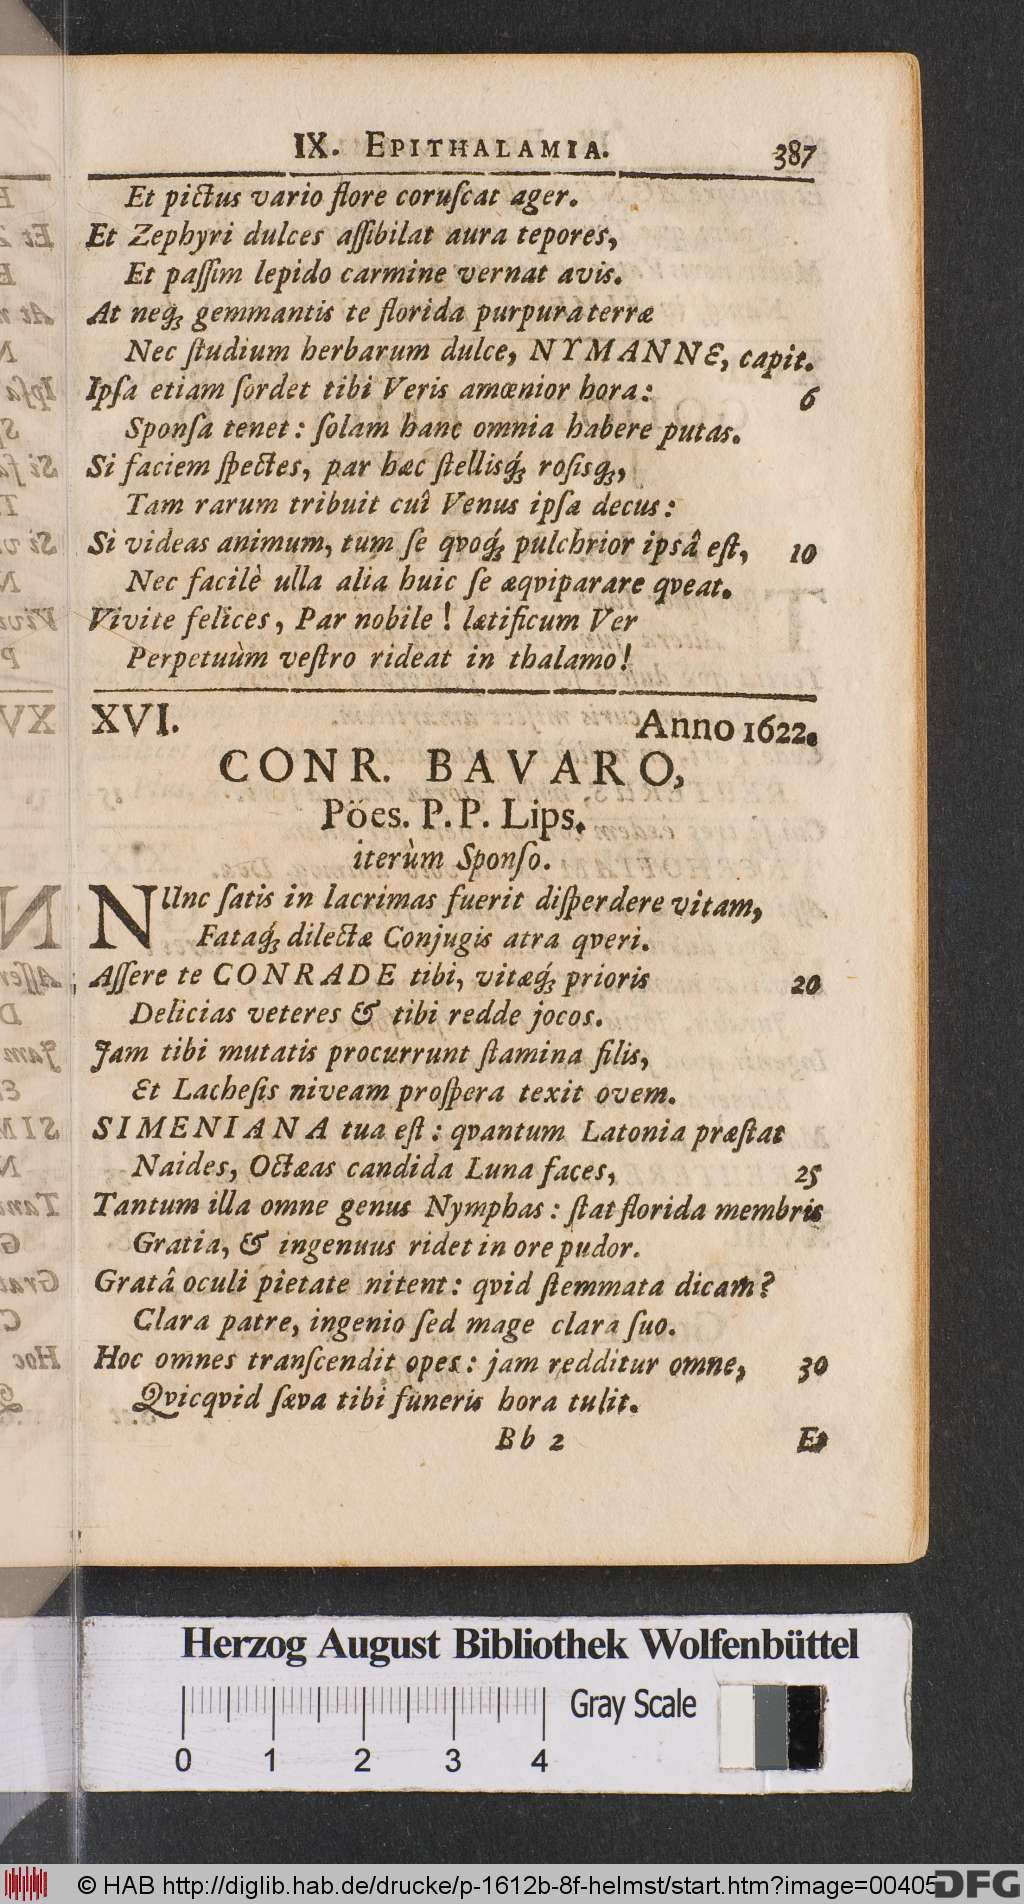 IX. EPITHALAMIA. 387
Et pictus vario flore coruſcat ager.
Et Zephyri dulces aſſibilat aura tepores,
Et paſſim lepido carmine vernat avis.
At neq́ꝫ gemmantis te florida purpura terræ
Nec ſtudium herbarum dulce, NYMANNE, capit.
Ipſa etiam ſordet tibi Veris amœnior hora: 6
Sponſa tenet: ſolam hanc omnia habere putas.
Si faciem ſpectes, par hæc ſtellisq́ꝫ rosisq́ꝫ,
Tam rarum tribuit cuî Venus ipſa decus:
Si videas animum, tum ſe qvoq́ꝫ pulchrior ipsâ eſt, 10
Nec facilè ulla alia huic ſe æqviparare qveat.
Vivite felices, Par nobile! lætificum Ver
Perpetuùm veſtro rideat in thalamo!
XVI. Anno 1622.
CONR. BAVARO,
Pöes. P. P. Lips.
iterùm Sponſo.
NUnc ſatis in lacrimas fuerit diſperdere vitam,
Fataq́ꝫ dilectæ Conjugis atra qveri.
Aſſere te CONRADE tibi, vitæq́ꝫ prioris 20
Delicias veteres & tibi redde jocos.
Jam tibi mutatis procurrunt ſtamina filis,
Et Lacheſis niveam proſpera texit ovem.
SIMENIANA tua eſt: qvantum Latonia præſtat
Naides, Octæas candida Luna faces, 25
Tantum illa omne genus Nymphas: ſtat florida membris
Gratia, & ingenuus ridet in ore pudor.
Gratâ oculi pietate nitent: qvid ſtemmata dicam?
Clara patre, ingenio ſed mage clara ſuo.
Hoc omnes tranſcendit opes: jam redditur omne, 30
Qvicqvid ſæva tibi funeris hora tulit.
Bb 2 Et
Herzog August Bibliothek Wolfenbüttel
Gray Scale
0 1 2 3 4
© HAB http://diglib.hab.de/drucke/p-1612b-8f-helmst/start.htm?image=00405
DFG